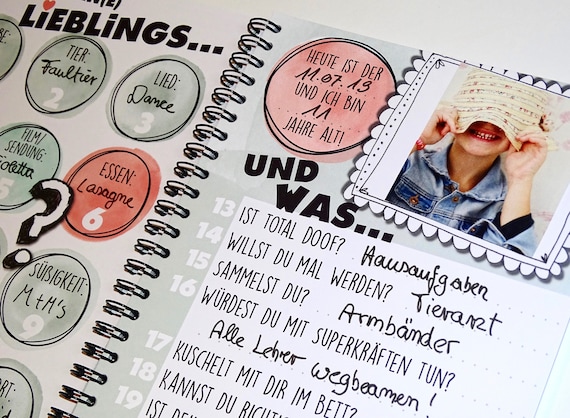 LIEBLINGS...
TIER:
Faultier
2
LIED:
Dance
3
FILM/
SENDUNG:
Violetta
5
ESSEN:
Lasagne
6
?
SÜßIGKEIT:
M+M's
9
HEUTE IST DER
11.07.19
UND ICH BIN
11
JAHRE ALT!
UND
WAS...
13 IST TOTAL DOOF? Hausaufgaben
14 WILLST DU MAL WERDEN? Tierarzt
15 SAMMELST DU? Armbänder
16 WÜRDEST DU MIT SUPERKRÄFTEN TUN?
Alle Lehrer wegbeamen!
17 KUSCHELT MIT DIR IM BETT?
18 KANNST DU RICHTIG
19 IST DEIN